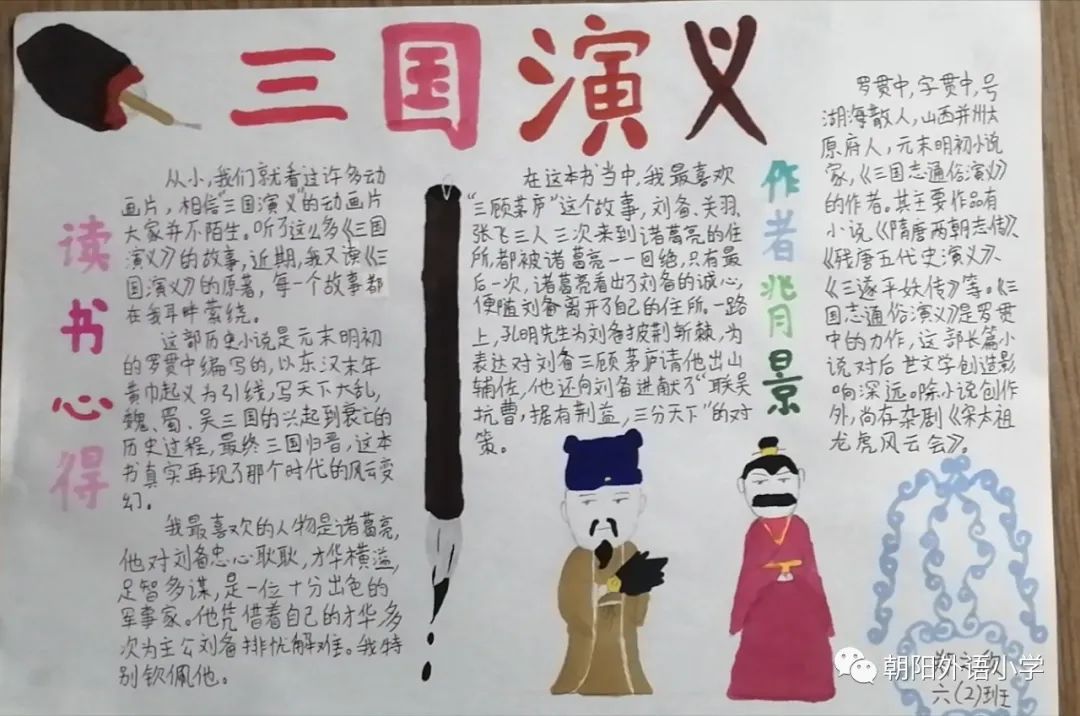 三国演义
读书心得
从小,我们就看过许多动
画片,相信"三国演义"的动画片
大家并不陌生。听了这么多《三国
演义》的故事,近期,我又读《三
国演义》的原著,每一个故事都
在我耳畔萦绕。
这部历史小说是元末明初
的罗贯中编写的,以东汉末年
黄巾起义为引线,写天下大乱,
魏、蜀、吴三国的兴起到衰亡的
历史过程,最终三国归晋,这本
书真实再现了那个时代的风云变
幻。
我最喜欢的人物是诸葛亮,
他对刘备忠心耿耿,才华横溢,
足智多谋,是一位十分出色的
军事家。他凭借着自己的才华,多
次为主公刘备排忧解难。我特
别钦佩他。
在这本书当中,我最喜欢
"三顾茅庐"这个故事,刘备、关羽、
张飞三人三次来到诸葛亮的住
所,都被诸葛亮一一回绝,只有最
后一次,诸葛亮看出了刘备的诚心,
便随刘备离开了自己的住所。一路
上,孔明先生为刘备披荆斩棘,为
表达对刘备三顾茅庐请他出山
辅佐,他还向刘备进献了"联吴
抗曹,据有荆益,三分天下"的对
策。
作者背景
罗贯中,字贯中,号
湖海散人,山西并州太
原府人,元末明初小说
家,《三国志通俗演义》
的作者。其主要作品有
小说《隋唐两朝志传》、
《残唐五代史演义》、
《三遂平妖传》等。《三
国志通俗演义》是罗贯
中的力作,这部长篇小
说对后世文学创造影
响深远。除小说创作
外,尚存杂剧《宋太祖
龙虎风云会》。
朝阳外语小学
六(2)班